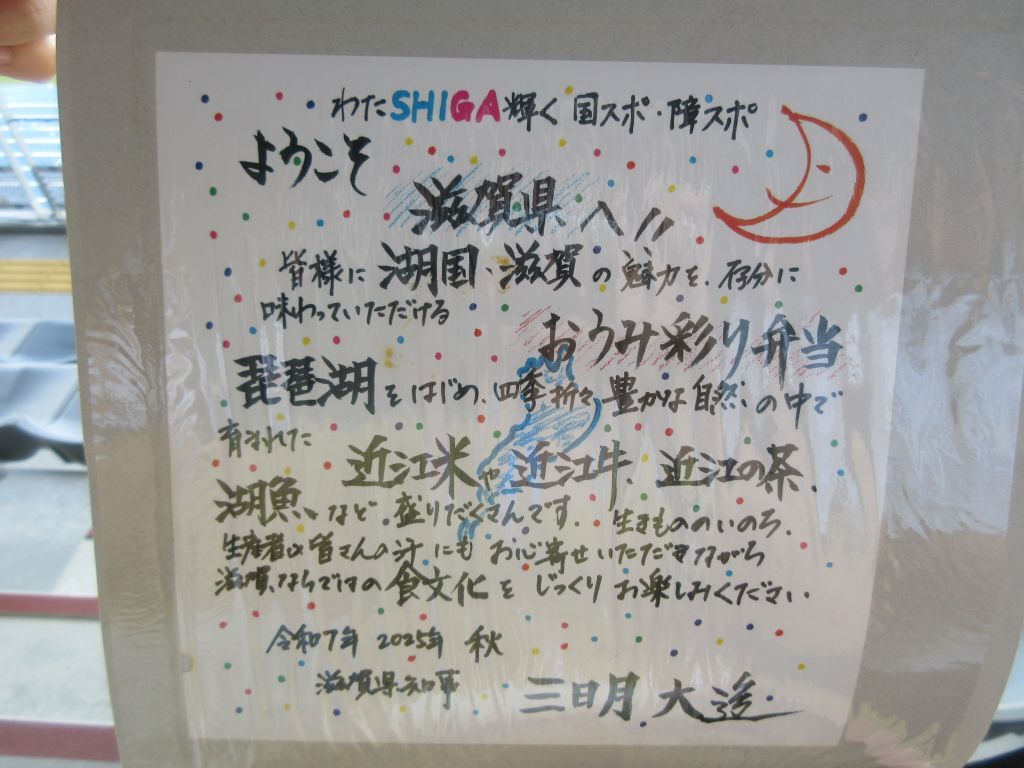 わたSHIGA輝く国スポ・障スポ
ようこそ
滋賀県へ!!
皆様に湖国・滋賀の魅力を、存分に
味わっていただける
おうみ彩り弁当
琵琶湖をはじめ、四季折々豊かな自然の中で
育まれた
近江米や近江牛、近江の茶、
湖魚、など、盛りだくさんです。生きもののいのち、
生産者の皆さんの汗にもお心寄せいただきながら
滋賀、ならではの食文化をじっくりお楽しみください。
令和7年 2025年 秋
滋賀県知事
三日月大造